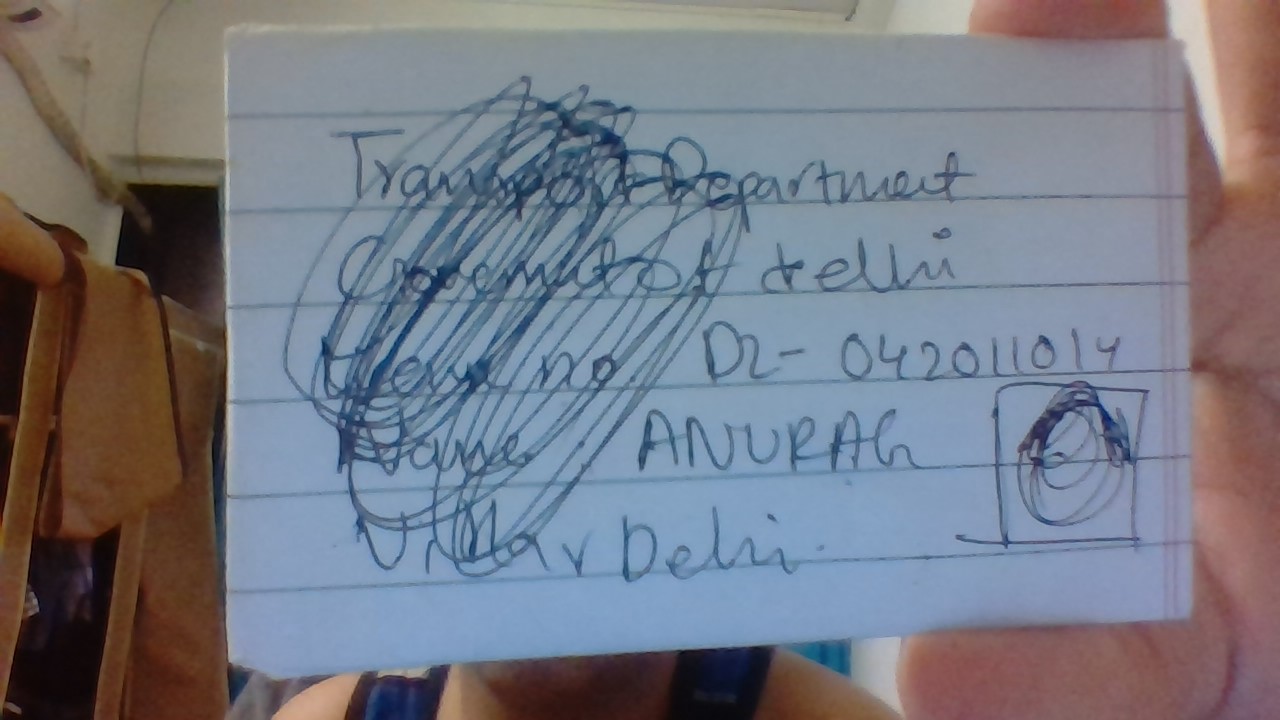 Transport Department
Govemnt of delhi
no DL- 042011014
Name ANURAG
Delhi